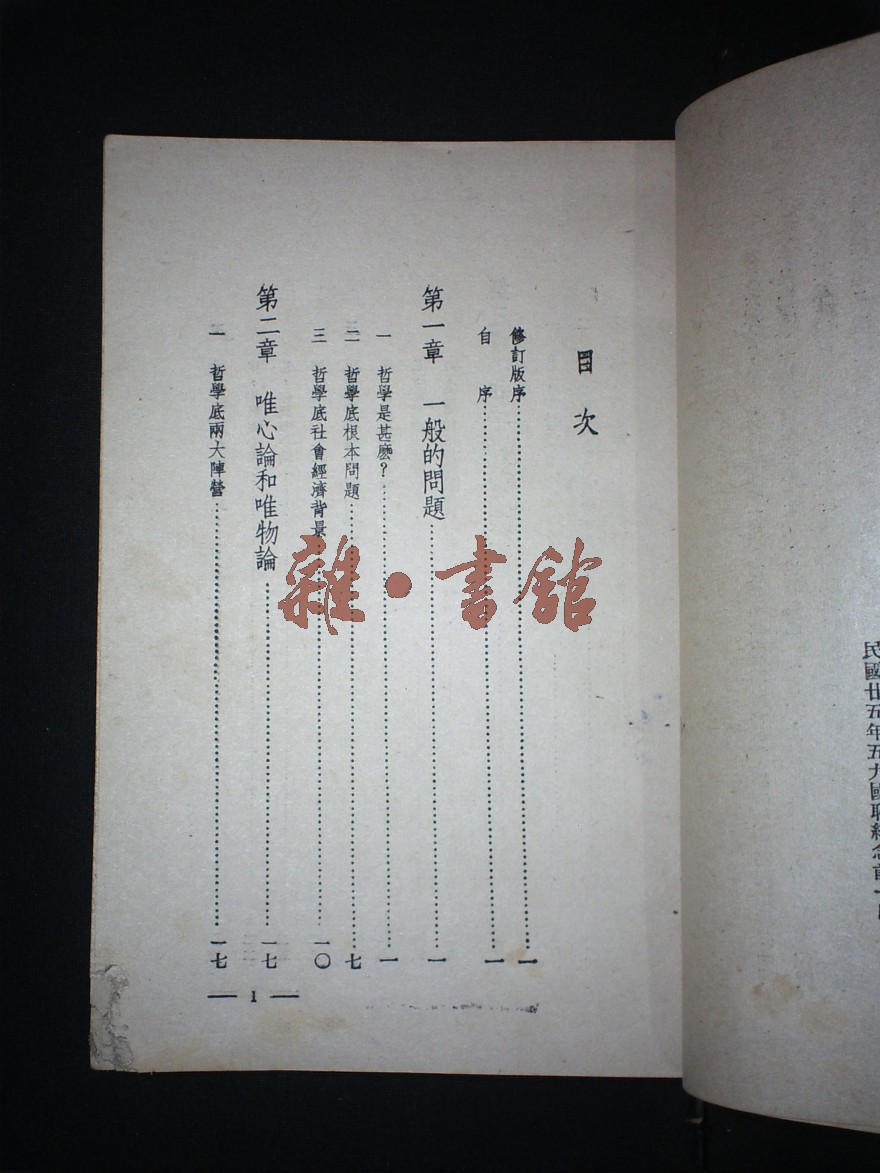 民國廿五年五九國恥紀念前一日
目次
修訂版序……一
自序……一
第一章 一般的問題……一
一 哲學是甚麽?……一
二 哲學底根本問題……七
三 哲學底社會經濟背景……一〇
第二章 唯心論和唯物論……一七
一 哲學底兩大陣營……一七
— 1 —
雜·書館